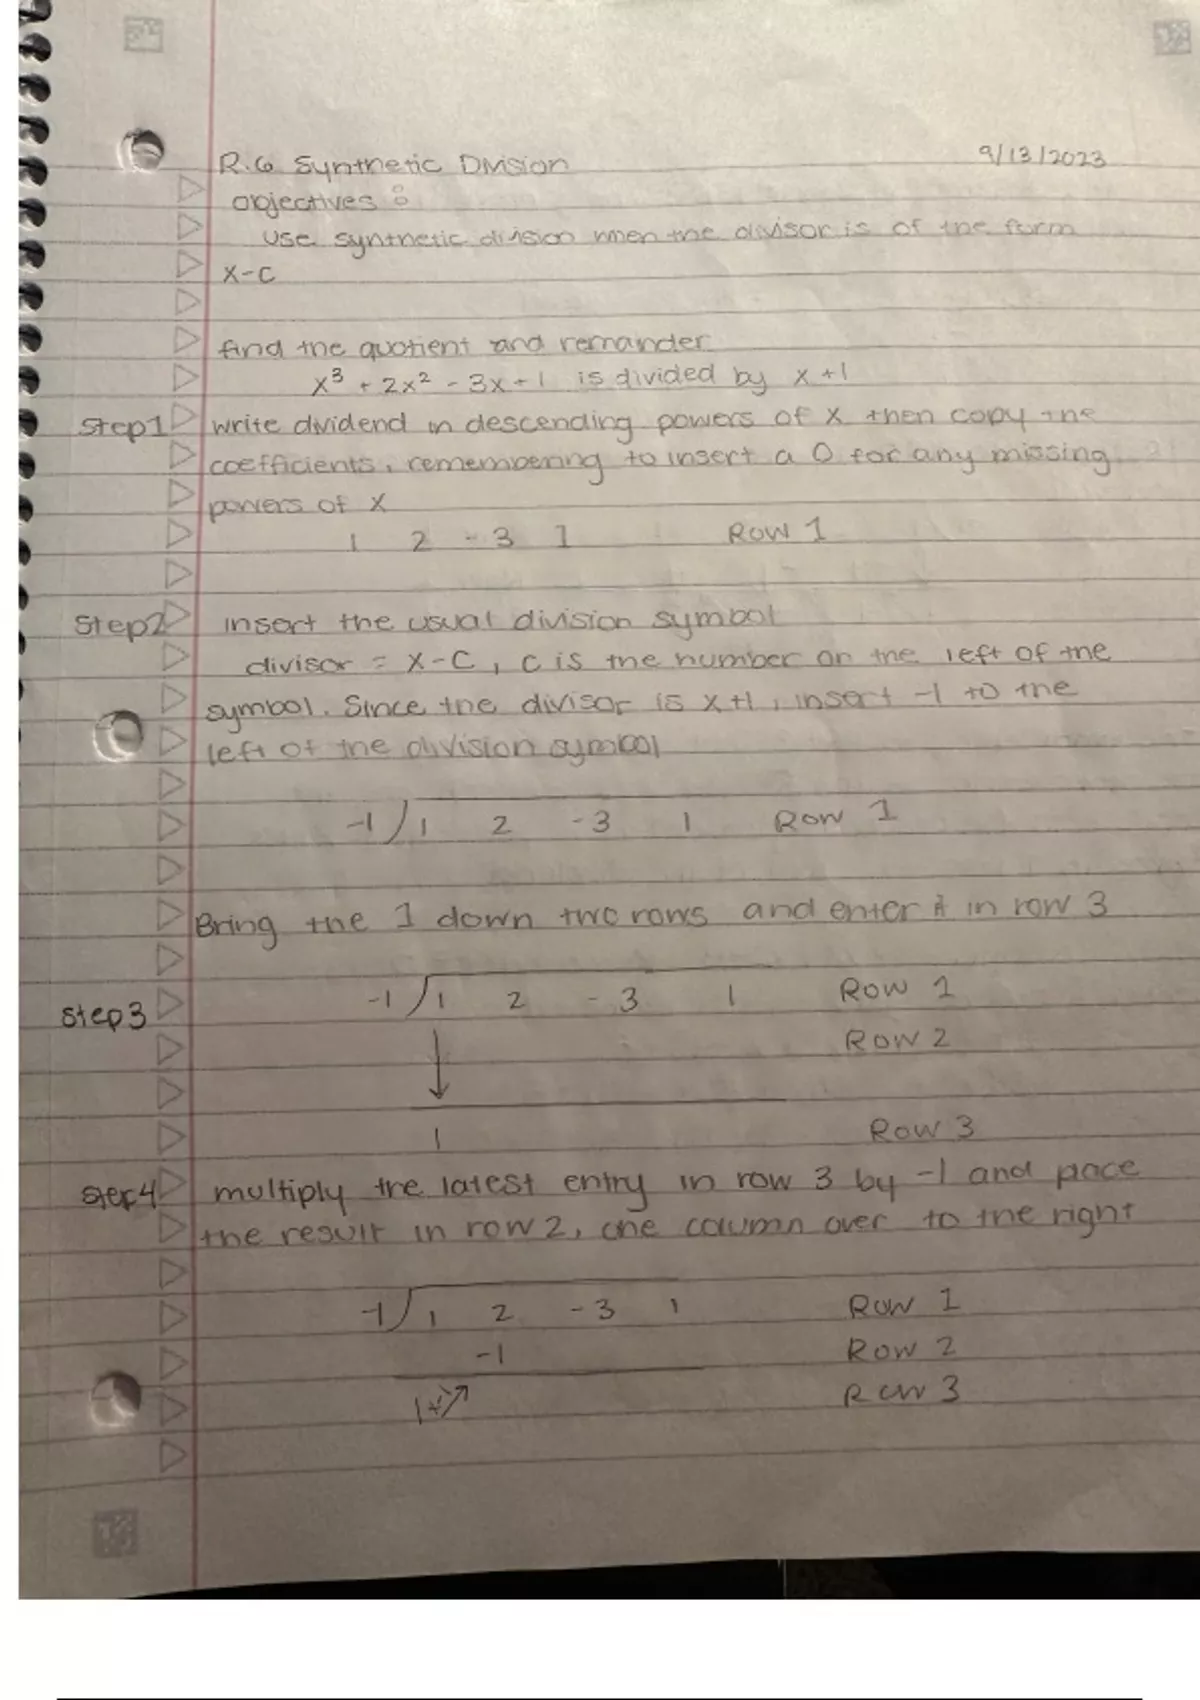 R.6 Synthetic Division 9/13/2023
objectives:
Use synthetic division when the divisor is of the form
x-c
find the quotient and remander
x³ + 2x² - 3x + 1 is divided by x + 1
Step1 write dividend in descending powers of x then copy the
coefficients, remembering to insert a 0 for any missing
powers of x
1 2 -3 1 Row 1
Step2 insert the usual division symbol
divisor = x-c, c is the number on the left of the
symbol. Since the divisor is x+1, insert -1 to the
left of the division symbol
-1 1 2 -3 1 Row 1
Bring the 1 down two rows and enter it in row 3
-1 1 2 -3 1 Row 1
Step3
Row 2
↓
1 Row 3
Step4 multiply the latest entry in row 3 by -1 and place
the result in row 2, one column over to the right
-1 1 2 -3 1 Row 1
-1 Row 2
1 Row 3